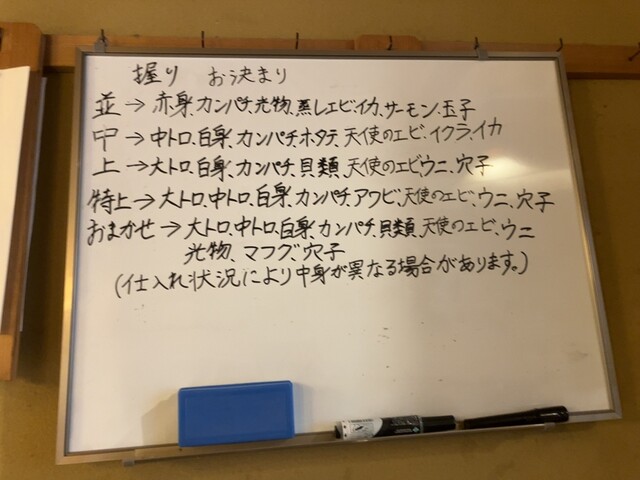 握り お決まり
並→赤身、カンパチ、光物、蒸しエビ、イカ、サーモン、玉子
中→中トロ、白身、カンパチ、ホタテ、天使のエビ、イクラ、イカ
上→大トロ、白身、カンパチ、貝類、天使のエビ、ウニ、穴子
特上→大トロ、中トロ、白身、カンパチ、アワビ、天使のエビ、ウニ、穴子
おまかせ→大トロ、中トロ、白身、カンパチ、貝類、天使のエビ、ウニ
光物、マフグ、穴子
(仕入れ状況により中身が異なる場合があります。)